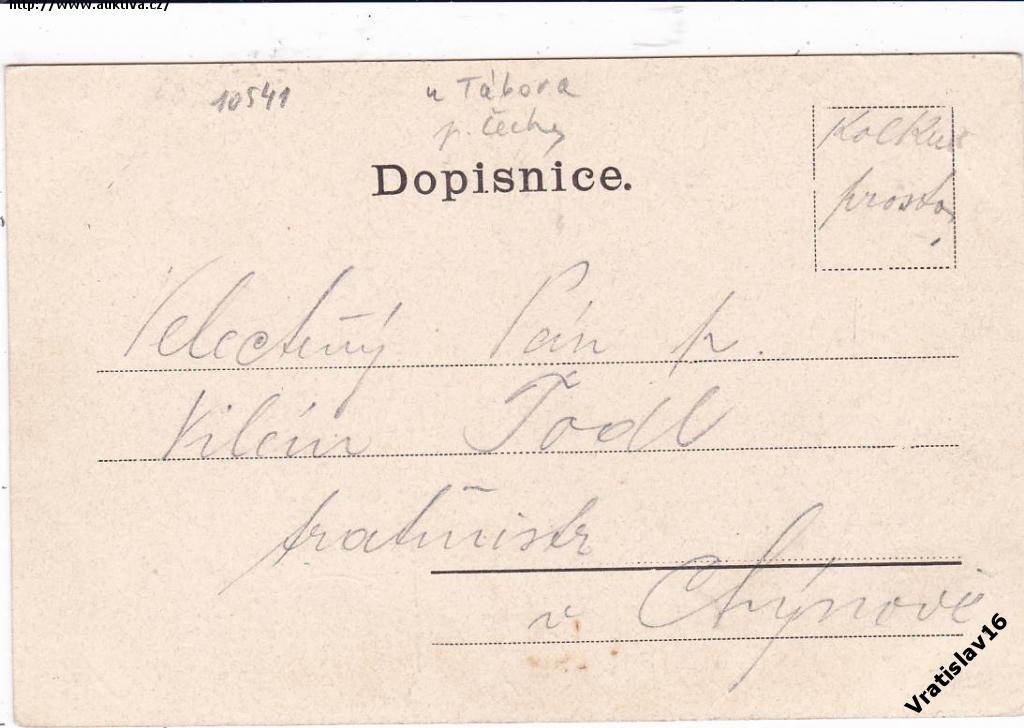 http://www.auktiva.cz/
10541
u Tábora
p. Čechy
Dopisnice.
Kolku
prosto
Velectěný Pán p.
Vilém Todl
tratmistr
v Chýnově
Vratislav16